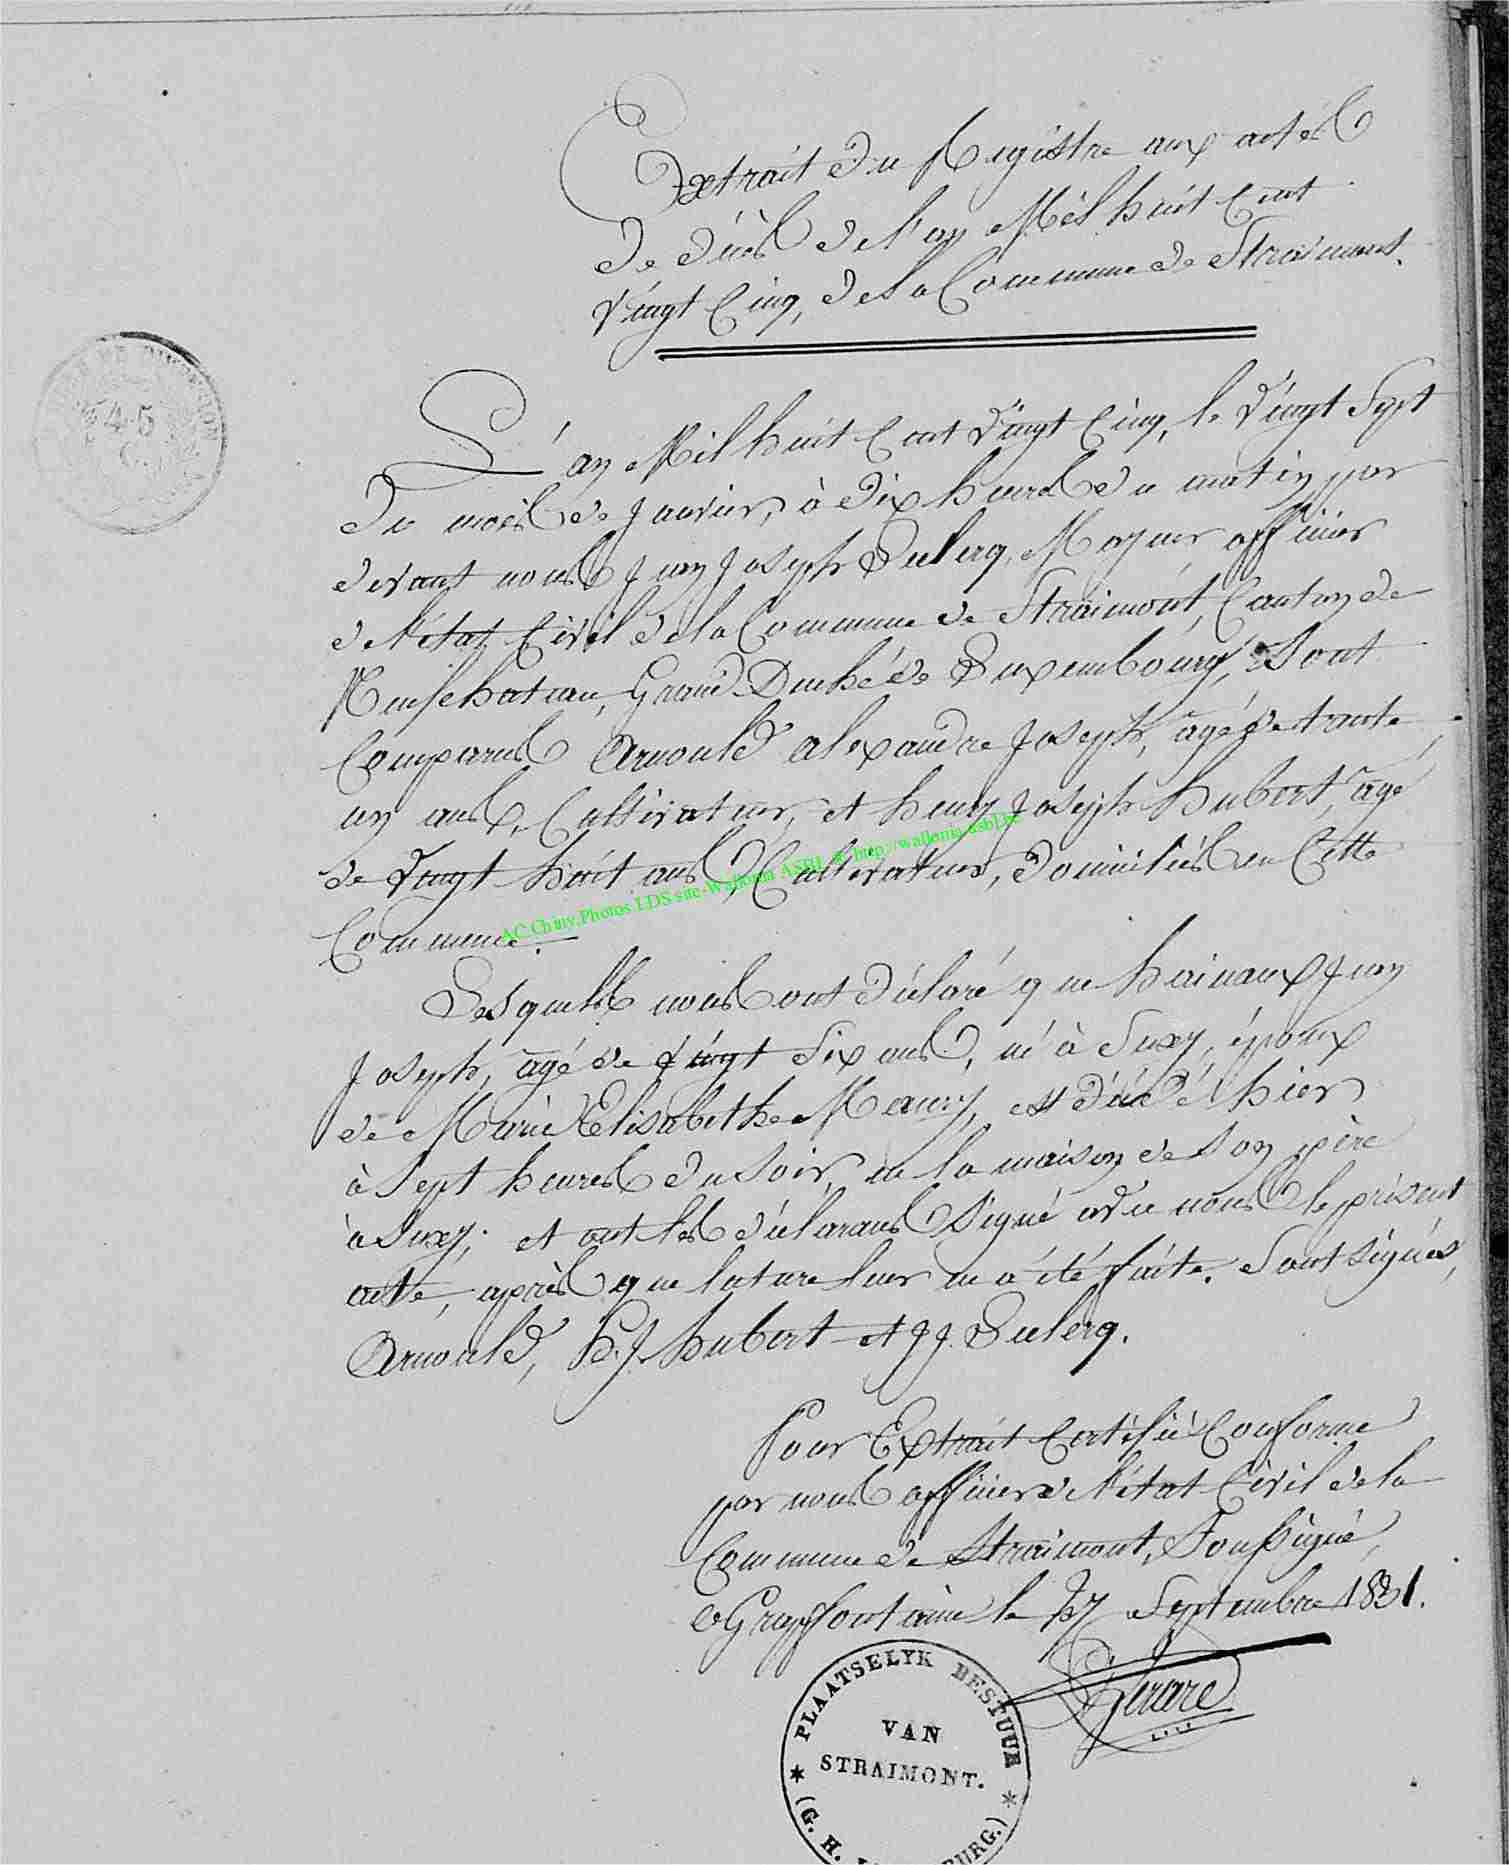 Extrait du Registre aux actes
de décès de l'an Mil huit Cent
Vingt Cinq, de la Commune de Straimont.
45
L'an Mil huit Cent Vingt Cinq, le Vingt Sept
du mois de Janvier, à dix heures du matin par
devant nous Jean Joseph Leclerq, Mayeur officier
de l'état Civil de la Commune de Straimont, Canton de
Neufchateau, Grand Duché de Luxembourg, Sont
Comparus Arnould alexandre Joseph, agé de trente
un ans, Cultivateur, et henry Joseph hubert, agé
de Vingt huit ans, Cultivateur, domiciliés en Cette
Commune.
AC.Chiny.Photos LDS site-Wallonia ASBL & http://wallonia-asbl.be
Lesquels nous ont déclaré que hainaux Jean
Joseph, agé de Vingt Six ans, né à Suxy, époux
de Marie Elisabethe Maury, est décédé hier
à Sept heures du soir, en la maison de Son père
à Suxy; et ont les déclarans Signé avec nous le présent
acte, après que lecture leur en a été faite. Sont signés,
Arnould, H. J. hubert et JJ. Leclerq.
Pour Extrait Certifié Conforme
par nous officier de l'état Civil de la
Commune de Straimont, Soussigné,
à Grapfontaine le 27 Septembre 1831.
PLAATSELYK BESTUUR
VAN
STRAIMONT.